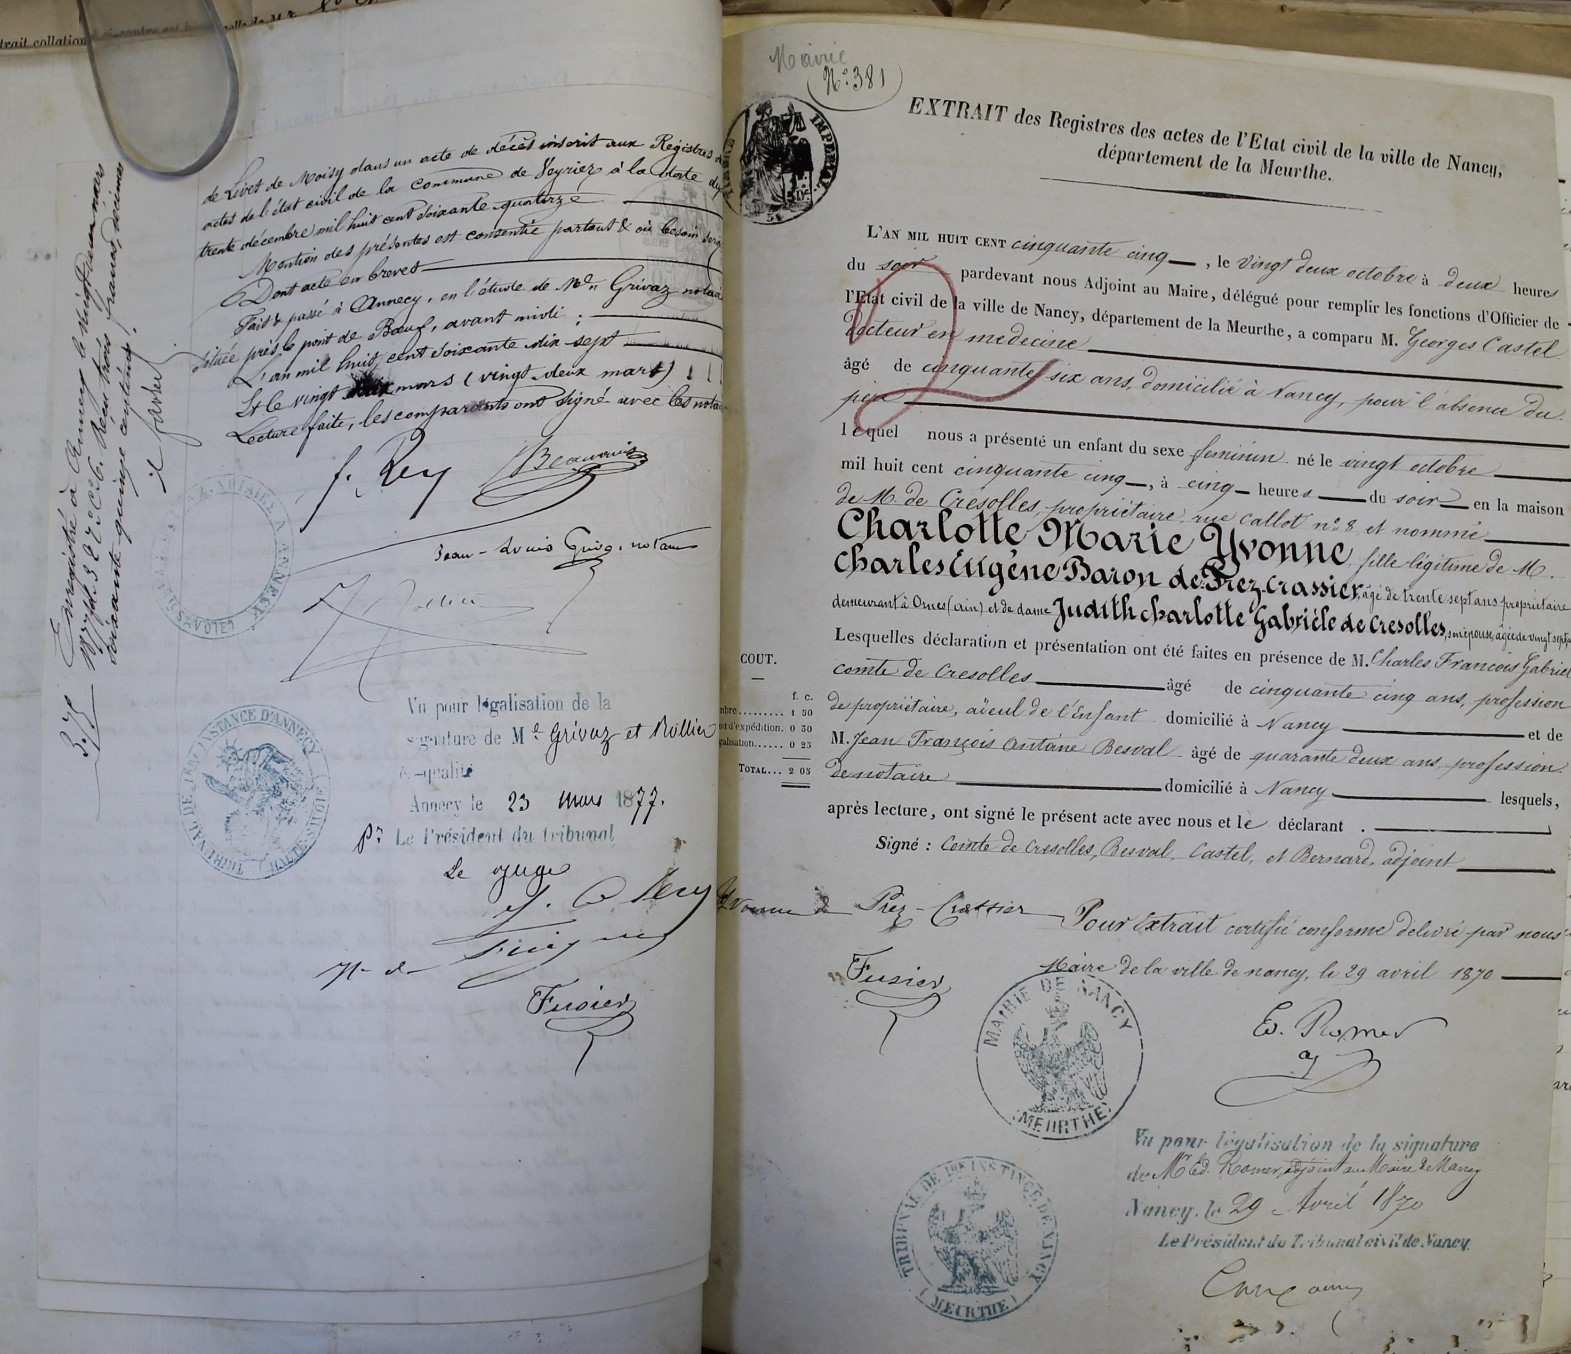 trait collation
de Livet de Moisy dans un acte de décès inscrit aux Registres
actes de l'état civil de la commune de Veyrier à la date du
trente décembre mil huit cent soixante-quatorze
Mention des présentes est consentie partout & où besoin sera
Dont acte en brevet
Fait & passé à Annecy, en l'étude de Me Grivaz notaire
située près le pont de Bœuf, avant midi ;
L'an mil huit cent soixante dix sept
Et le vingt deux mars (vingt-deux mars)
Lecture faite, les comparants ont signé avec les notaires
f. Rey Beauvais
Jean-Louis Grivaz, notaire
Rollier
Enregistré à Annecy le vingt-deux mars
1877
soixante quinze centimes
3.75
Vu pour légalisation de la
signature de Me Grivaz et Rollier
Annecy le 23 mars 1877.
Pr Le Président du tribunal
Le juge
Fusier
TRIBUNAL DE 1ERE INSTANCE D'ANNECY
HTE SAVOIE
Mairie
No 381
TIMBRE IMPERIAL
EXTRAIT des Registres des actes de l'Etat civil de la ville de Nancy,
département de la Meurthe.
L'AN MIL HUIT CENT cinquante cinq, le vingt deux octobre à deux heures
du soir pardevant nous Adjoint au Maire, délégué pour remplir les fonctions d'Officier de
l'Etat civil de la ville de Nancy, département de la Meurthe, a comparu M. Georges Castel
docteur en medecine
âgé de cinquante six ans, domicilié à Nancy, pour l'absence du
père
lequel nous a présenté un enfant du sexe feminin né le vingt octobre
mil huit cent cinquante cinq, à cinq heures du soir en la maison
de M. de Cresolles, propriétaire, rue Callot no 8 et nommé
Charlotte Marie Yvonne fille légitime de M.
Charles Eugène Baron de Prez-Crassier, âgé de trente sept ans propriétaire
demeurant à Ornex (ain) et de dame Judith Charlotte Gabrièle de Cresolles, son épouse, âgée de vingt sept
Lesquelles déclaration et présentation ont été faites en présence de M. Charles François Gabriel
comte de Cresolles âgé de cinquante cinq ans, profession
de propriétaire, aïeul de l'Enfant domicilié à Nancy et de
M. Jean François Antoine Besval âgé de quarante deux ans, profession
de notaire domicilié à Nancy lesquels,
après lecture, ont signé le présent acte avec nous et le déclarant.
Signé : Comte de Cresolles, Besval, Castel, et Bernard, adjoint
COUT.
f. c.
mbre........ 1 50
d'expédition. 0 30
galisation...... 0 25
TOTAL... 2 05
Yvonne de Prez-Crassier
Pour Extrait certifié conforme délivré par nous
Maire de la ville de Nancy, le 29 avril 1870
Fusier
MAIRIE DE NANCY
(MEURTHE)
Ed. Romer
Vu pour légalisation de la signature
de Mr Ed. Romer, adjoint au Maire de Nancy
Nancy, le 29 Avril 1870
Le Président du Tribunal civil de Nancy
TRIBUNAL DE 1ERE INSTANCE DE NANCY
(MEURTHE)